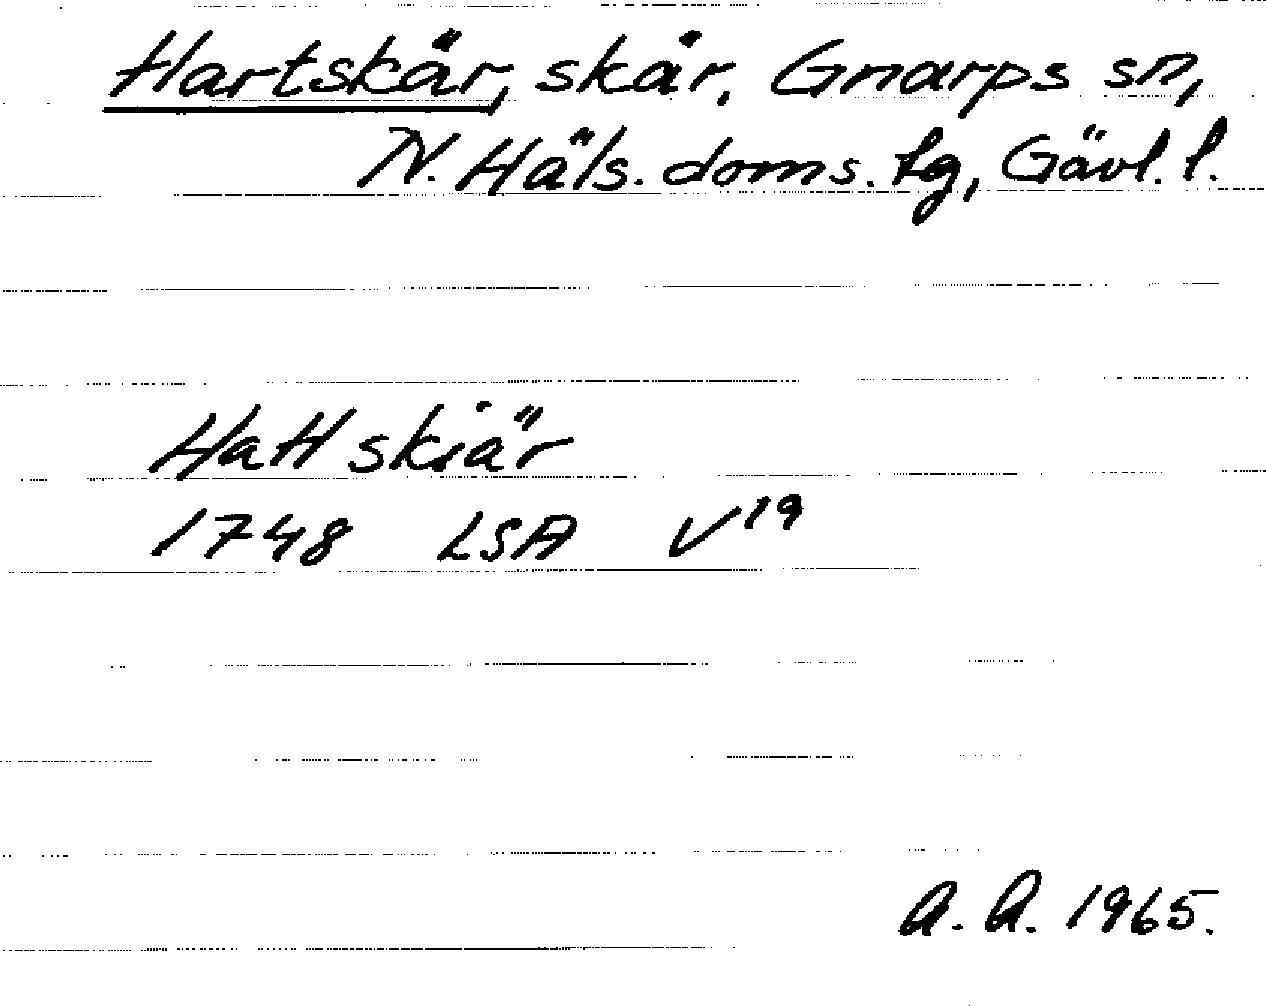 Hartskär, skär. Gnarps sn,
N. Häls. doms. tg, Gävl. l.
Hattskiär
1748 LSA V¹⁹
A. A. 1965.